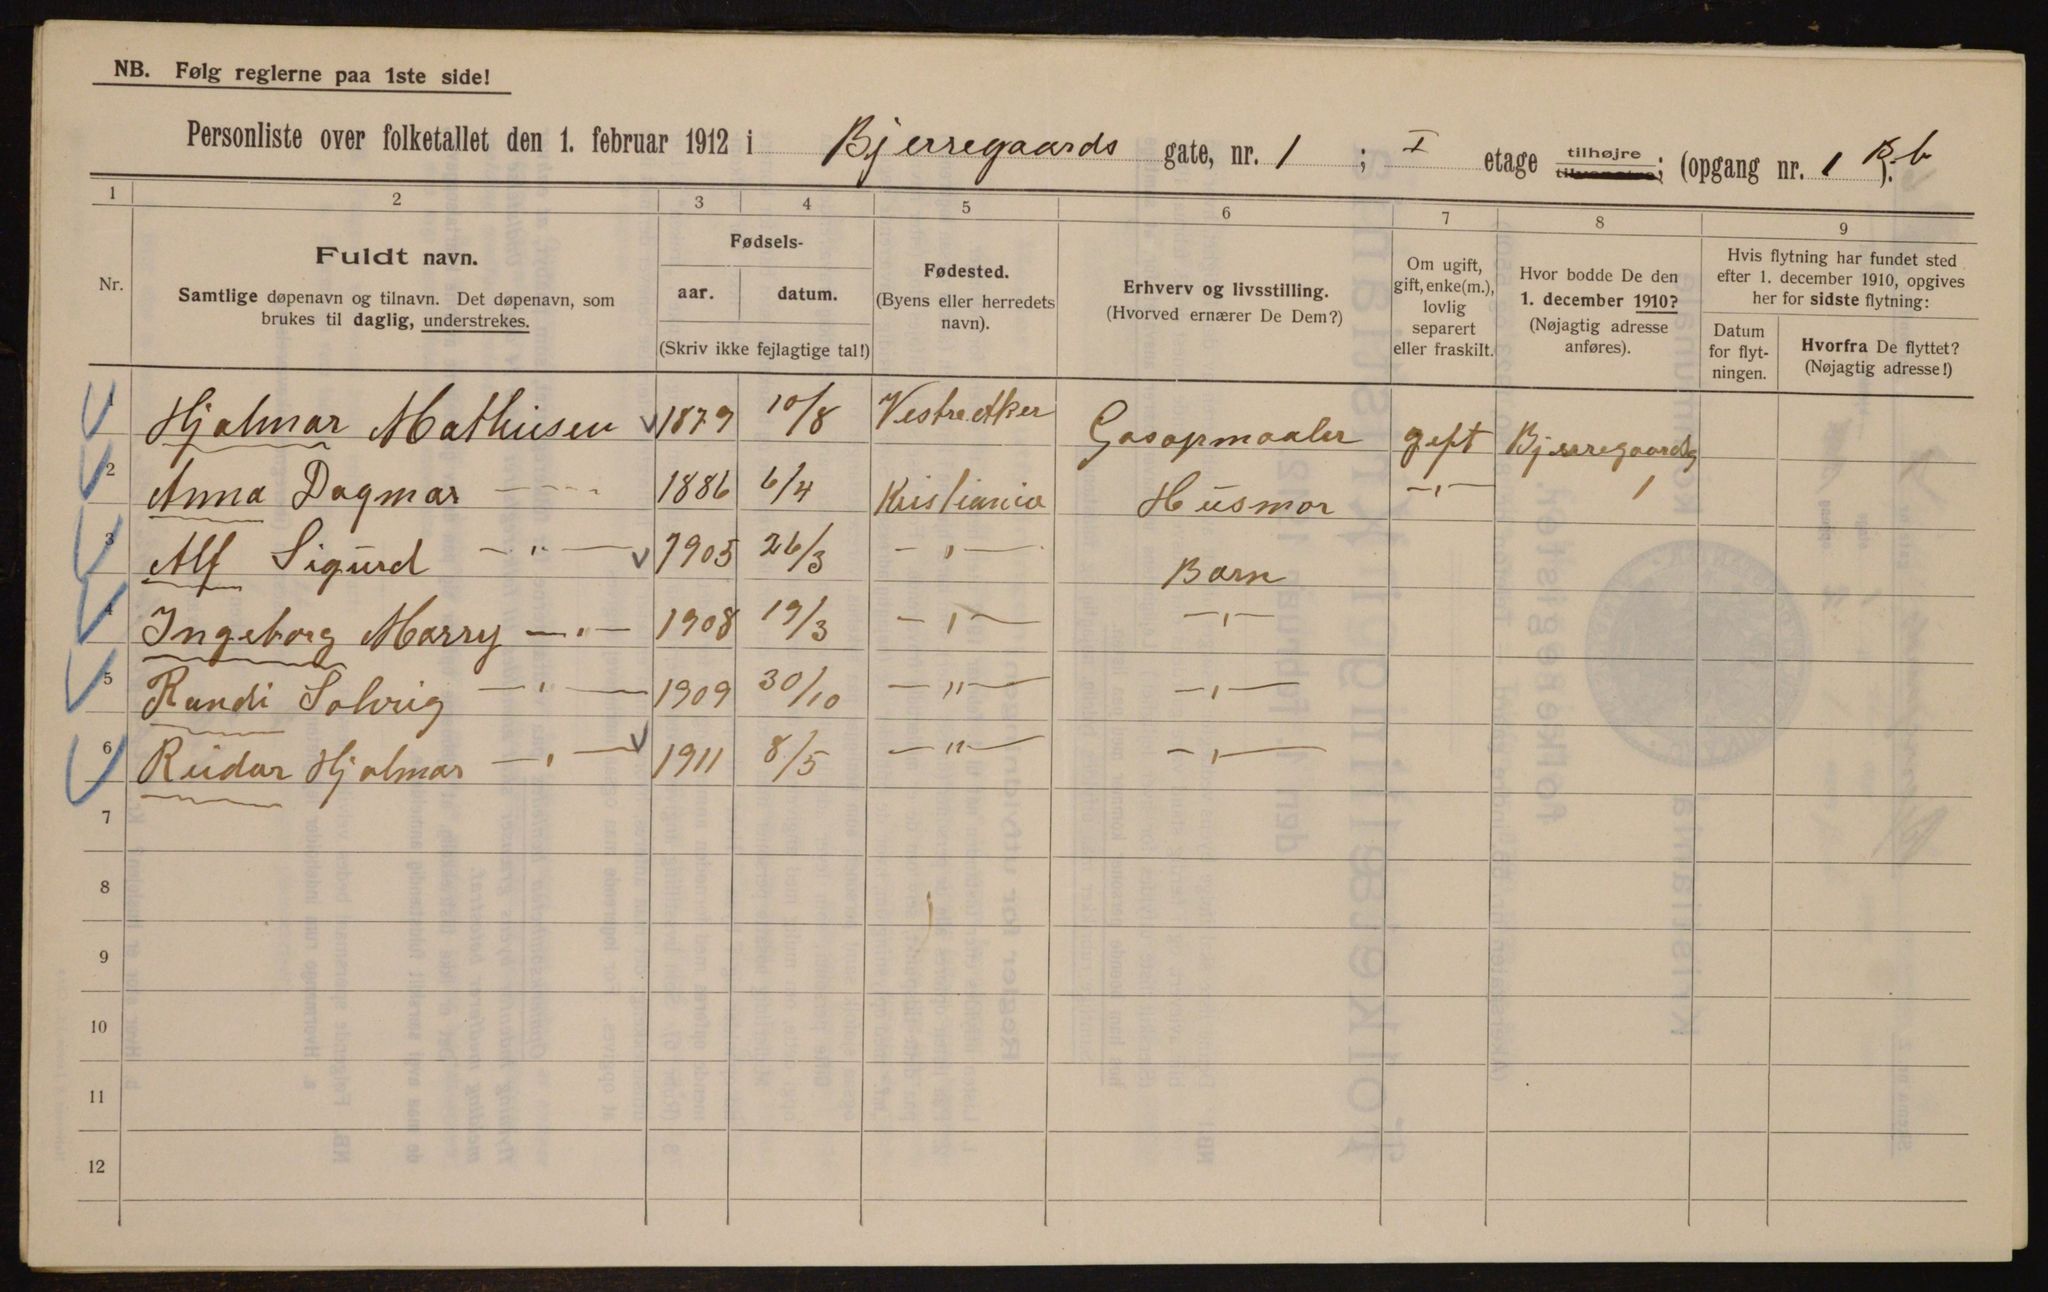 NB. Følg reglerne paa 1ste side!
Personliste over folketallet den 1. februar 1912 i Bjerregaards gate, nr. 1 ; I etage tilhøjre tilvenstre; (opgang nr. 1 B.b ).
1 2 3 4 5 6 7 8 9
Nr.
Fuldt navn.
Samtlige døpenavn og tilnavn. Det døpenavn, som
brukes til daglig, understrekes.
Fødsels-
aar. datum.
(Skriv ikke fejlagtige tal!)
Fødested.
(Byens eller herredets
navn).
Erhverv og livsstilling.
(Hvorved ernærer De Dem?)
Om ugift,
gift, enke(m.),
lovlig
separert
eller fraskilt.
Hvor bodde De den
1. december 1910?
(Nøjagtig adresse
anføres).
Hvis flytning har fundet sted
efter 1. december 1910, opgives
her for sidste flytning:
Datum
for flyt-
ningen.
Hvorfra De flyttet?
(Nøjagtig adresse!)
1 Hjalmar Mathiesen 1879 10/8 Vestre Aker Gasopmaaler gift Bjerregaardsg
2 Anna Dagmar - - - - 1886 6/4 Kristiania Husmor — " — 1
3 Alf Sigurd — " — 1905 26/3 — " — Barn
4 Ingeborg Marry — " — 1908 19/3 — " — — " —
5 Randi Solveig — " — 1909 30/10 — " — — " —
6 Reidar Hjalmar — " — 1911 8/5 — " — — " —
7
8
9
10
11
12